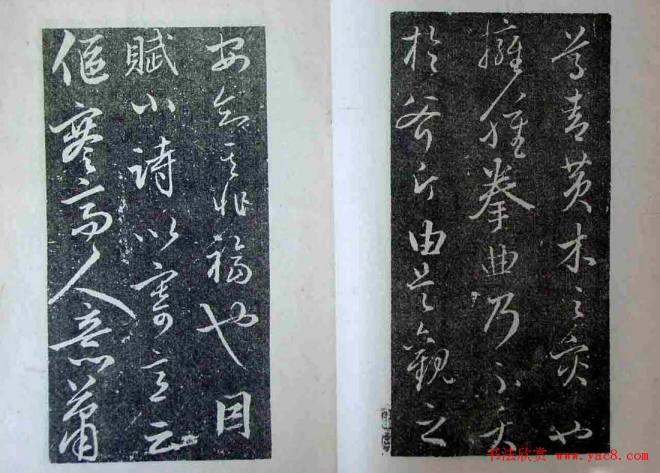 尊青黄木之灾也
擁腫拳曲乃不夭
於斧斤由是觀之
安知其非福也因
賦小詩以寄意云
偃蹇高人意蕭
书法欣赏 www.yac8.com